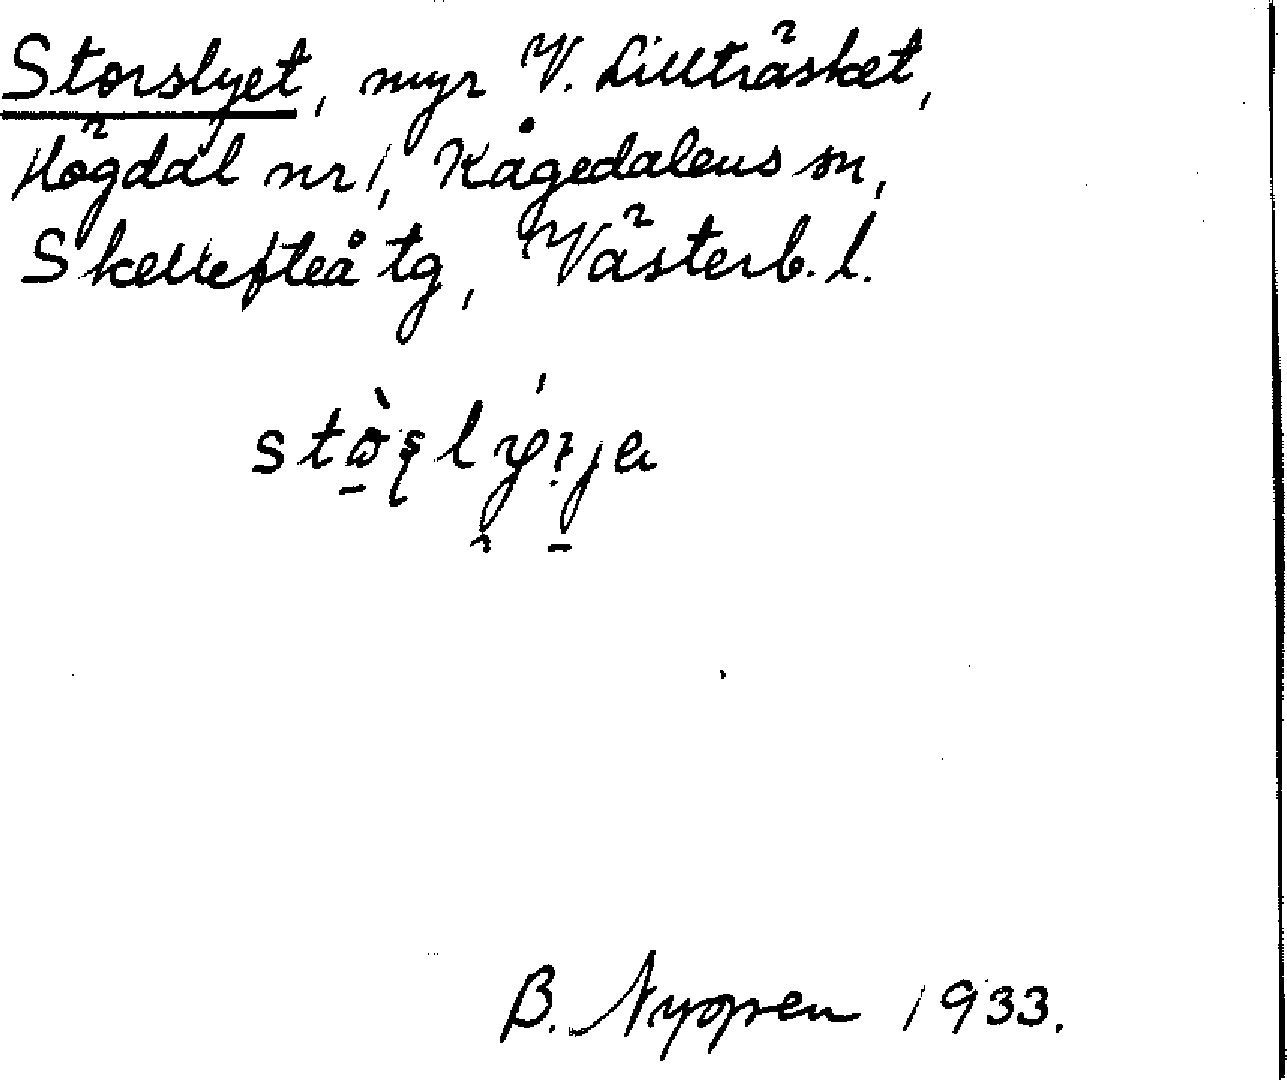 Storslyet, myr V. Lillträsket,
Högdal nr 1, Kågedalens sn,
Skellefteå tg, Västerb. l.
B. Nyopen 1933.